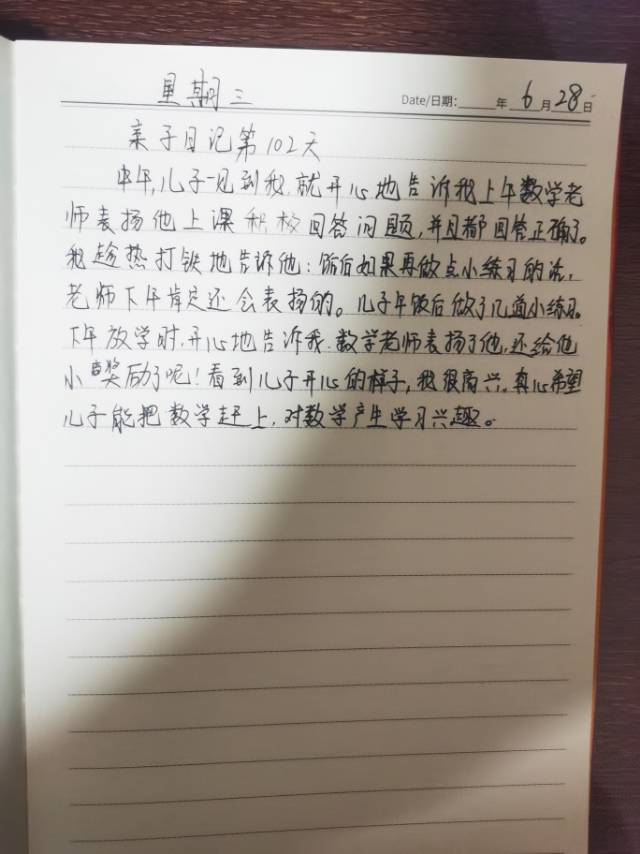 星期三 Date/日期: 年 6 月 28 日
亲子日记第102天
中午,儿子一见到我,就开心地告诉我上午数学老
师表扬他上课积极回答问题,并且都回答正确了。
我趁热打铁地告诉他:饭后如果再做点小练习的话,
老师下午肯定还会表扬的。儿子午饭后做了几道小练习。
下午放学时,开心地告诉我,数学老师表扬了他,还给他
小奖励了呢!看到儿子开心的样子,我很高兴。真心希望
儿子能把数学赶上,对数学产生学习兴趣。